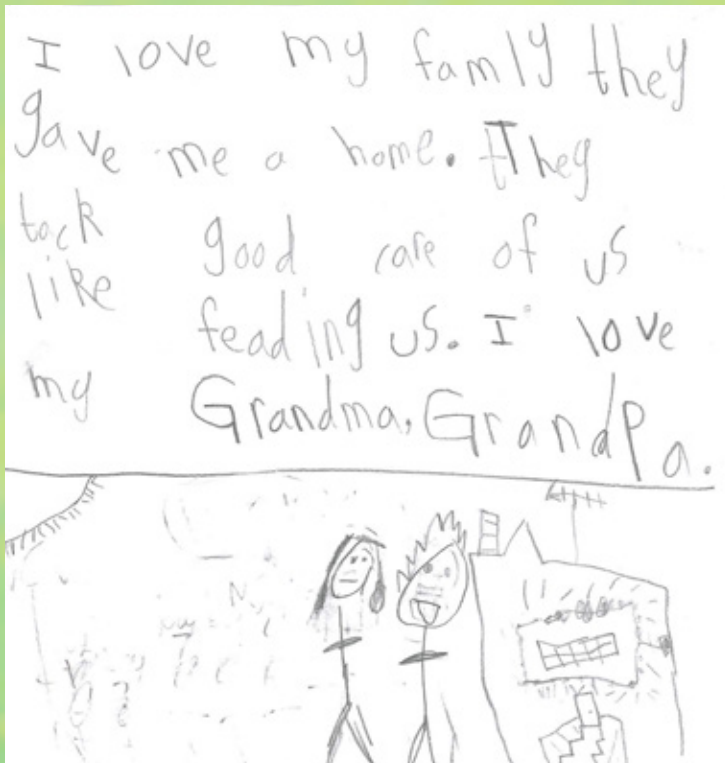 I love my famly they
gave me a home. They
tack good care of us
like feading us. I love
my Grandma, Grandpa.